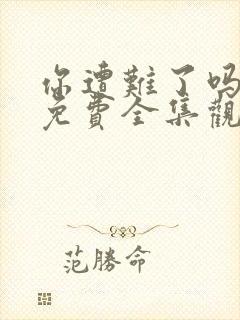 你遭難了吗
免費全集觀
范勝命